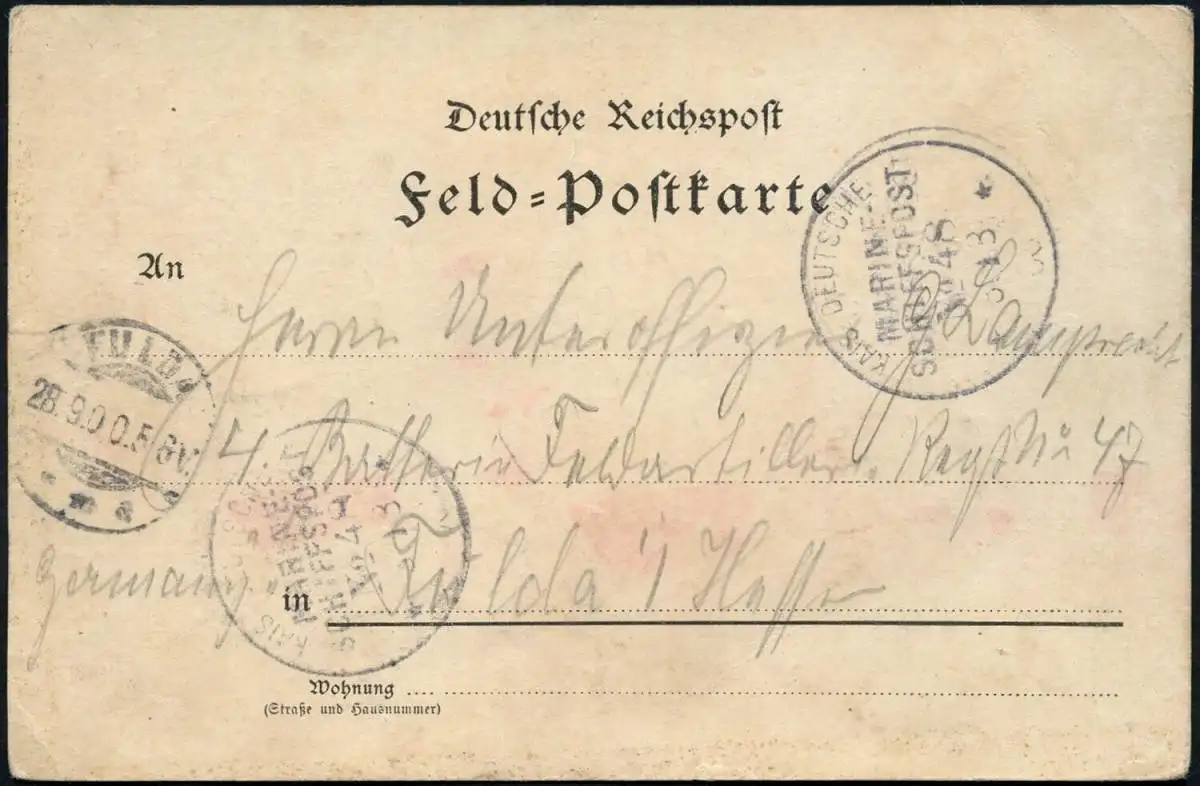 Deutsche Reichspost
Feld=Postkarte
KAIS. DEUTSCHE
MARINE-
SCHIFFSPOST
No 48
13 8
*
An
Herrn Unteroffizier Lamprecht
FULDA
28.9.00.5-6N.
4. Batterie Feldartiller. Regt No 47
KAIS. DEUTSCHE
MARINE-
SCHIFFSPOST
No 48
*
Germany.
in Fulda i/Hessen
Wohnung
(Straße und Hausnummer)